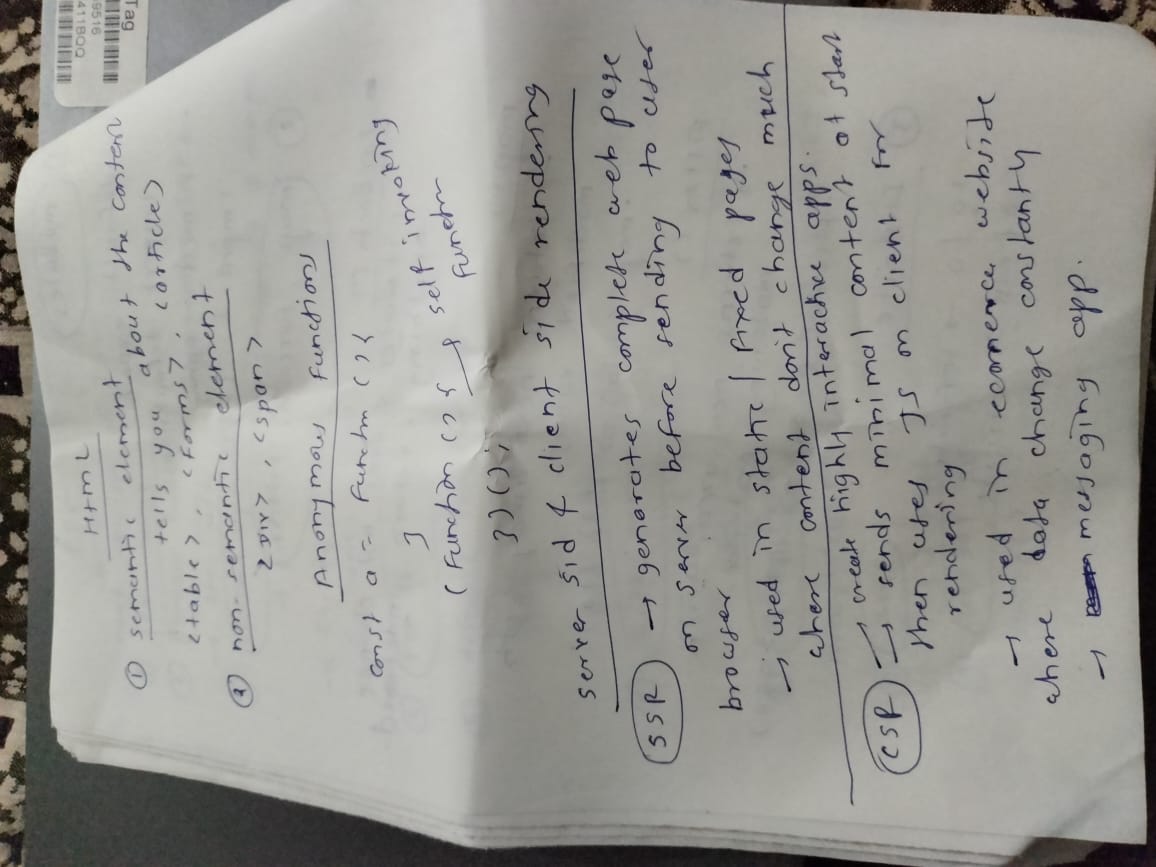 Tag
59516
411B0Q
Html
① semantic element
tells you about the content
<table>, <forms>, <article>
② non-semantic element
<DIV>, <span>
Anonymous functions
const a = Functn () {
}
(Function () { → self invoking
functn
}) ();
server sid & client side rendering
SSR → generates complete web page
on server before sending to user
browser
→ used in static / fixed pages
where content don't change much
CSR → create highly interactive apps.
→ sends minimal content at start
then uses JS on client for
rendering
→ used in ecommerce website
where data change constantly
→ messaging app.